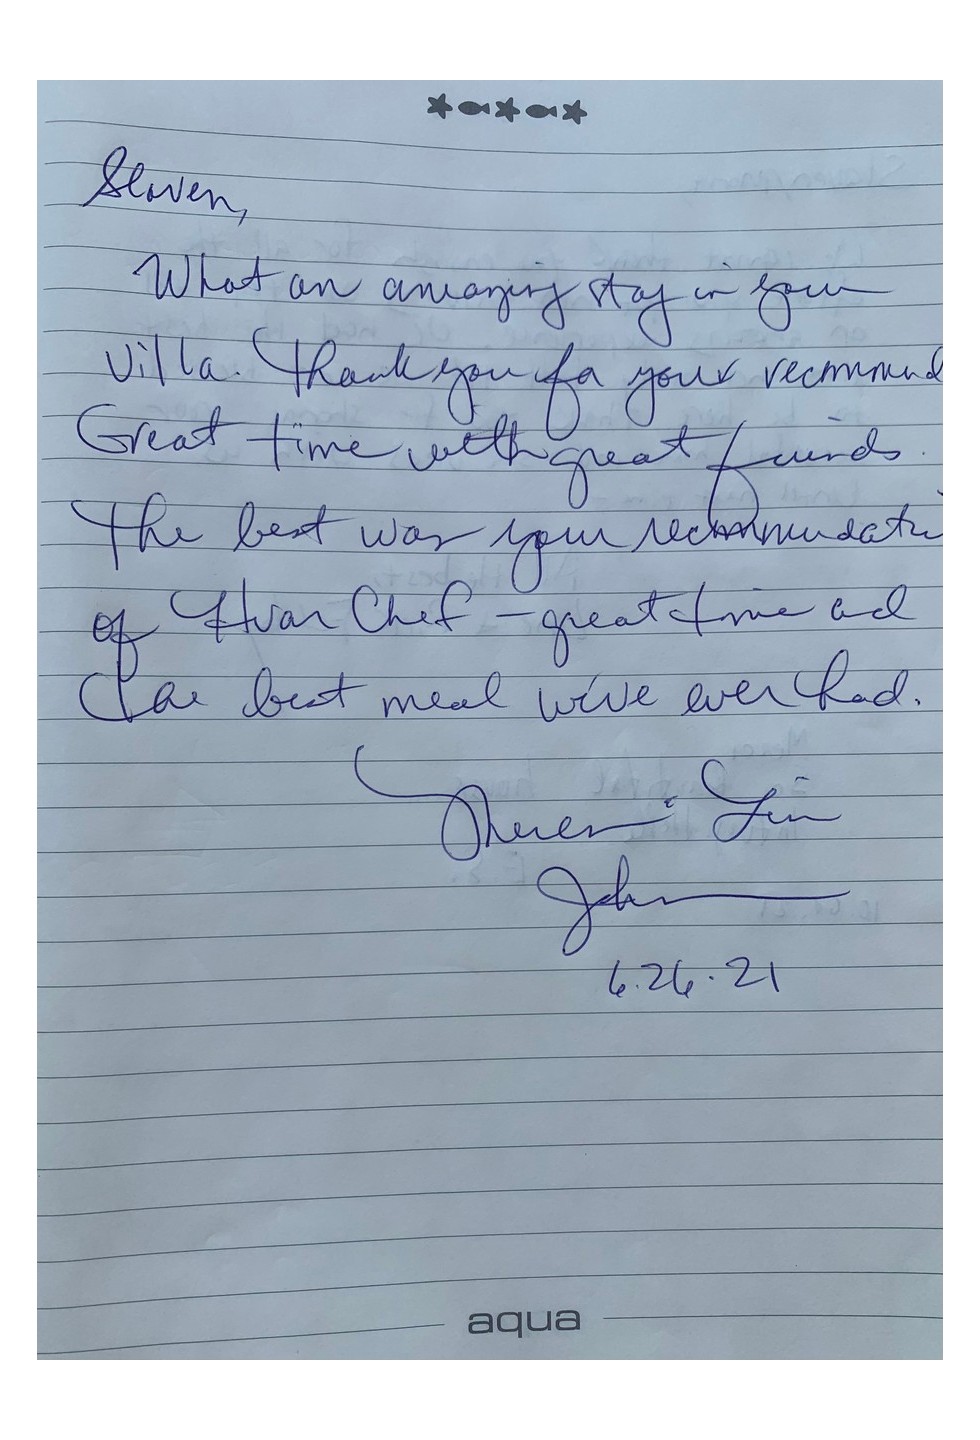 Slaven,
What an amazing stay in your
Villa. Thank you for your recommend
Great time with great friends.
The best was your recommendati
of Hvar Chef - great time and
the best meal we've ever had.
John
6.26.21
aqua